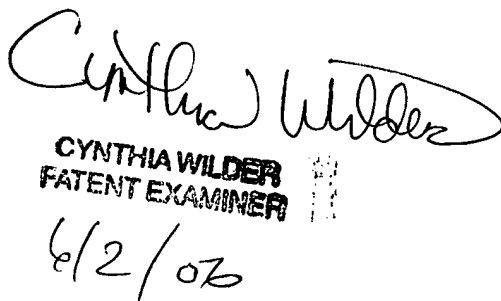 Cynthia Wilder
CYNTHIA WILDER
PATENT EXAMINER
6/2/06